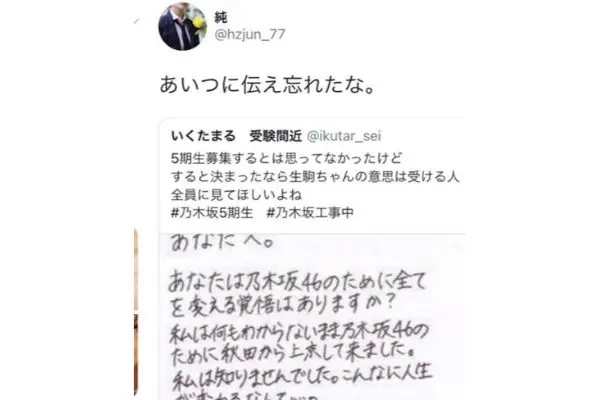 純
@hzjun_77
あいつに伝え忘れたな。
いくたまる 受験間近 @ikutar_sei
5期生募集するとは思ってなかったけど
すると決まったなら生駒ちゃんの意思は受ける人
全員に見てほしいよね
#乃木坂5期生 #乃木坂工事中
あなたへ。
あなたは乃木坂46のために全て
を変える覚悟はありますか?
私は何もわからないまま乃木坂46の
ために秋田から上京して来ました。
私は知りませんでした。こんなに人生